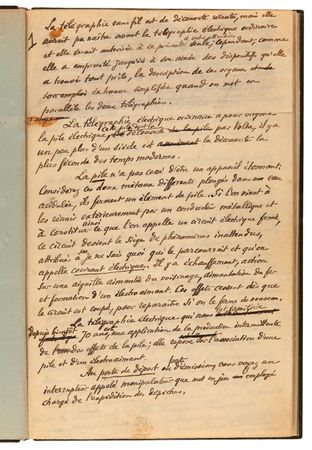 1
La télégraphie sans fil est de découverte récente, mais elle
aurait pu naître avant la télégraphie électrique ordinaire
et elle serait autorisée à se présenter seule, cependant, comme
elle a emprunté jusqu'ici à son aînée des dispositifs qu'elle
a trouvés tout prêts, la description de ces organes
son emploi se trouve simplifiée quand on met en
parallèle les deux télégraphies.
La télégraphie électrique ordinaire a pour origine
la pile électrique, découverte par Volta, il y a
un peu plus d'un siècle et la découverte la
plus féconde des temps modernes.
La pile n'a pas cessé d'être un appareil étonnant.
Considérez ces deux métaux différents plongés dans une eau
acidulée, ils forment un élément de pile. Si l'on vient à
les réunir extérieurement par un conducteur métallique et
à constituer ainsi ce que l'on appelle un circuit électrique fermé,
ce circuit devient le siège de phénomènes inattendus,
attribués à je ne sais quoi qui le parcourrait et qu'on
appelle courant électrique. Il y a échauffement, action
sur une aiguille aimantée du voisinage, aimantation du fer
et formation d'un électroaimant. Ces effets cessent dès que
le circuit est coupé, pour reparaître si on le ferme de nouveau.
La télégraphie électrique qui nous est familière
depuis bientôt 70 ans, est une application de la production intermittente
de ces effets de la pile; elle repose sur l'association d'une
pile et d'un électroaimant.
Au poste de départ ou d'émission, vous voyez un
interrupteur appelé manipulateur que met en jeu un employé
chargé de l'expédition des dépêches.